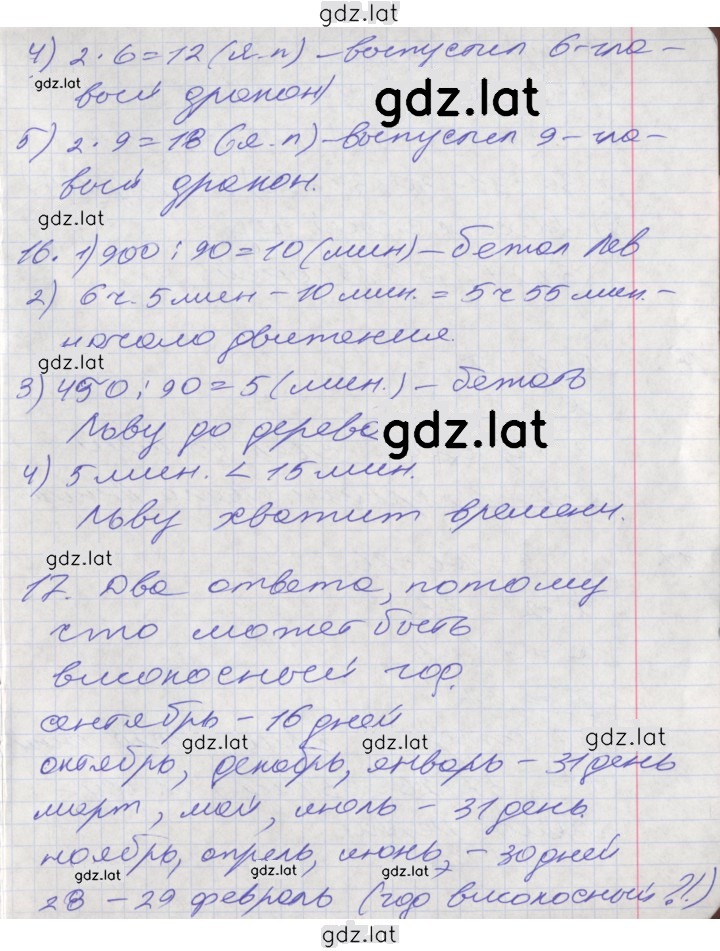 gdz.lat
4) 2 · 6 = 12 (я. п) – выпустил 6-гла-
gdz.lat
вый дракон)
gdz.lat
5) 2 · 9 = 18 (я. п) – выпустил 9-гла-
вый дракон.
gdz.lat
16. 1) 900 : 90 = 10 (мин) – бежал Лев
2) 6 ч. 5 мин – 10 мин. = 5 ч 55 мин. –
начало движения.
gdz.lat
3) 450 : 90 = 5 (мин.) – бежать
Льву до дерева
gdz.lat
4) 5 мин. < 15 мин.
Льву хватит времени.
gdz.lat
17. Два ответа, потому
что может быть
високосный год.
сентябрь – 16 дней
gdz.lat gdz.lat gdz.lat
октябрь, декабрь, январь – 31 день
март, май, июль – 31 день.
ноябрь, апрель, июнь, – 30 дней
gdz.lat gdz.lat gdz.lat
28 – 29 февраль (год високосный?!)
gdz.lat